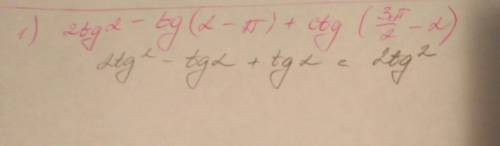 1) 2tgα - tg(α - π) + ctg (3π/2 - α)
2tg² - tgα + tgα = 2tg²